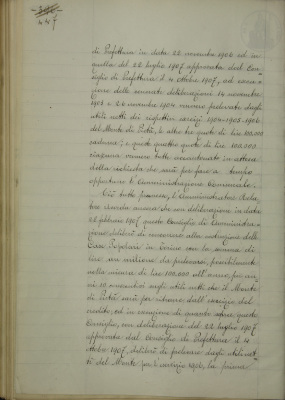 447
di Prefettura in data 22 novembre 1906 ed in
quella del 22 luglio 1907 approvata dal Con-
siglio di Prefettura il 4 ottobre 1907, ed in esecu-
zione delle sennate deliberazioni 14 novembre
1903 e 26 novembre 1904 vennero prelevate dagli
utili netti dei rispettivi esercizi 1904-1905-1906
del Monte di Pietà, le altre tre quote di lire 100.000
caduna; e queste quattro quote di lire 100.000
ciascuna vennero tutte accantonate in attesa
della richiesta che sarà per fare a tempo
opportuno l'Amministrazione Comunale.
Ciò tutto premesso, l'Amministratore Rela-
tore ricorda ancora che con deliberazione in data
25 febbraio 1907 questo Consiglio di Amministra-
zione deliberò di concorrere alla costruzione delle
Case Popolari in Torino con la somma di
lire un milione da prelevarsi, possibilmente
nella misura di lire 100.000 all'anno, per an-
ni 10 consecutivi sugli utili netti che il Monte
di Pietà sarà per ritrarre dall'esercizio del
credito; ed in esecuzione di quanto sopra, questo
Consiglio, con deliberazione del 22 luglio 1907
approvata dal Consiglio di Prefettura il 4
ottobre 1907, deliberò di prelevare dagli utili net-
ti del Monte per l'esercizio 1906, la prima